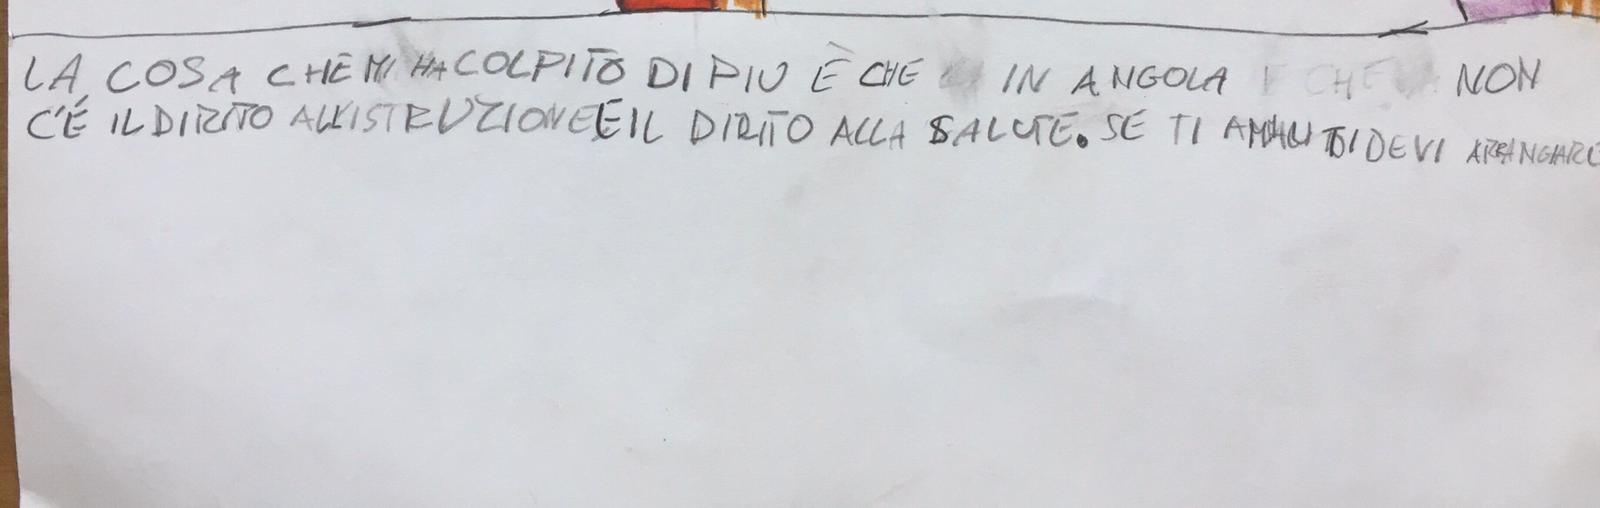 LA COSA CHE MI HA COLPITO DI PIU È CHE IN ANGOLA NON
C'É IL DIRITO ALL'ISTRUZIONE E IL DIRITO ALLA SALUTE. SE TI AMALI TI DEVI ARANGIARE